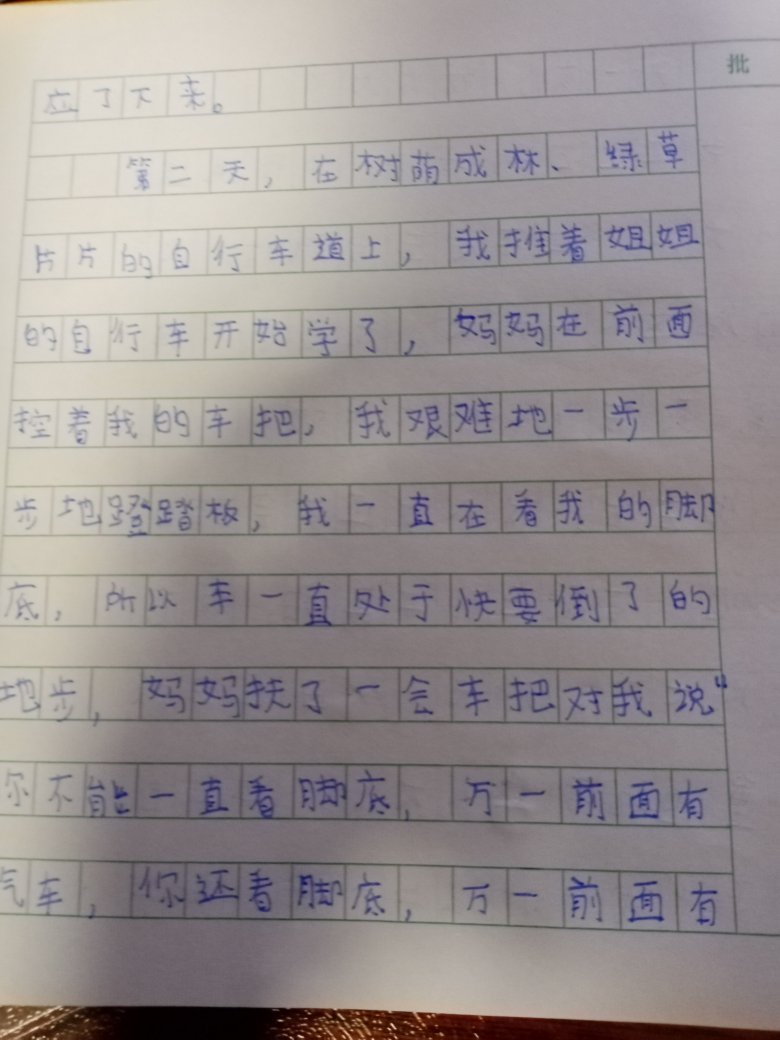 批
应了下来。
第二天，在树萌成林、绿草
片片的自行车道上，我推着姐姐
的自行车开始学了，妈妈在前面
控着我的车把，我艰难地一步一
步地蹬踏板，我一直在看我的脚
底，所以车一直处于快要倒了的
地步，妈妈扶了一会车把对我说“
你不能一直看脚底，万一前面有
汽车，你还看脚底，万一前面有